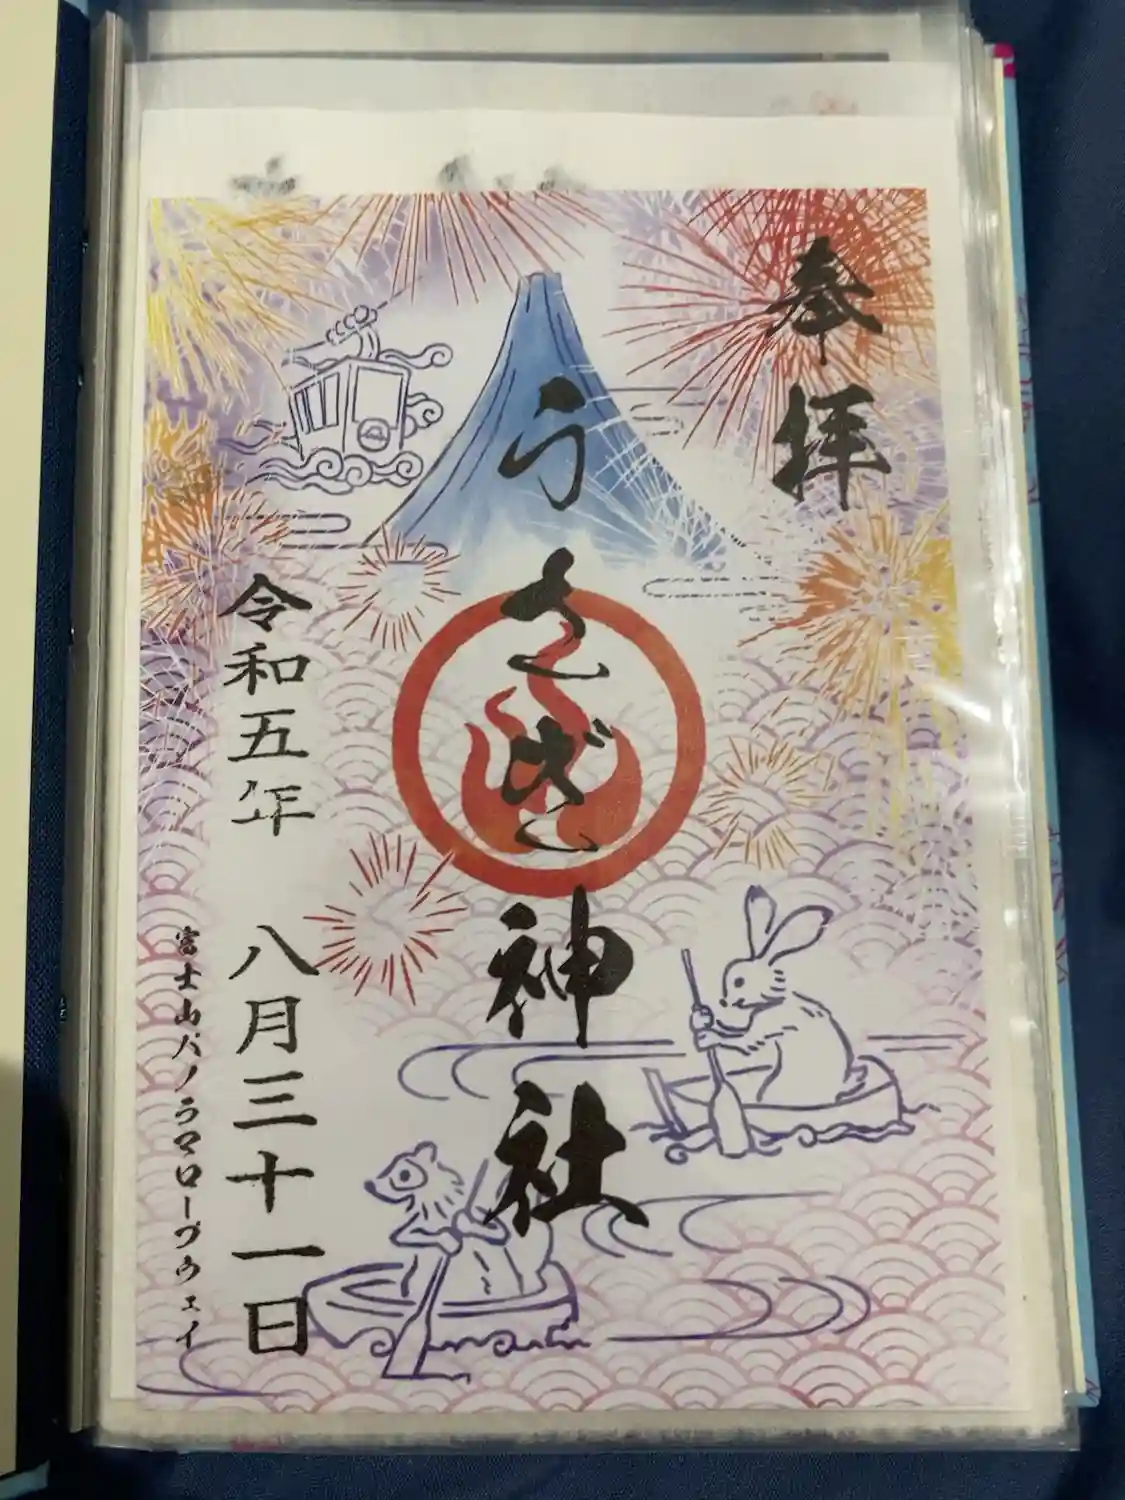 奉拝
うさぎ神社
令和五年 八月三十一日
富士山パノラマロープウェイ